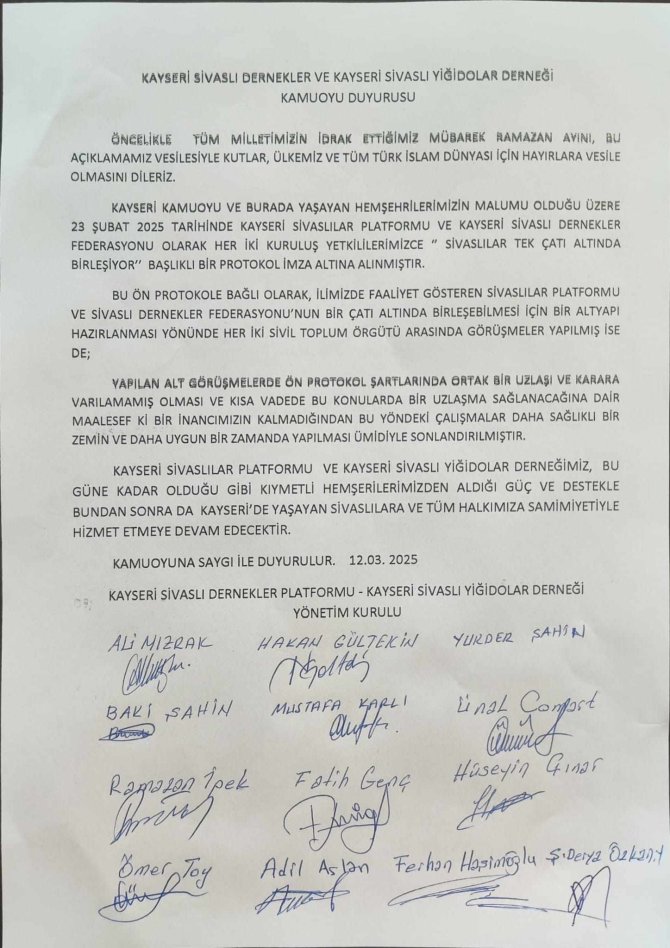 KAYSERİ SİVASLI DERNEKLER VE KAYSERİ SİVASLI YİĞİDOLAR DERNEĞİ
KAMUOYU DUYURUSU
ÖNCELİKLE TÜM MİLLETİMİZİN İDRAK ETTİĞİMİZ MÜBAREK RAMAZAN AYINI, BU
AÇIKLAMAMIZ VESİLESİYLE KUTLAR, ÜLKEMİZ VE TÜM TÜRK İSLAM DÜNYASI İÇİN HAYIRLARA VESİLE
OLMASINI DİLERİZ.
KAYSERİ KAMUOYU VE BURADA YAŞAYAN HEMŞEHRİLERİMİZİN MALUMU OLDUĞU ÜZERE
23 ŞUBAT 2025 TARİHİNDE KAYSERİ SİVASLILAR PLATFORMU VE KAYSERİ SİVASLI DERNEKLER
FEDERASYONU OLARAK HER İKİ KURULUŞ YETKİLİLERİMİZCE “ SİVASLILAR TEK ÇATI ALTINDA
BİRLEŞİYOR’’ BAŞLIKLI BİR PROTOKOL İMZA ALTINA ALINMIŞTIR.
BU ÖN PROTOKOLE BAĞLI OLARAK, İLİMİZDE FAALİYET GÖSTEREN SİVASLILAR PLATFORMU
VE SİVASLI DERNEKLER FEDERASYONU’NUN BİR ÇATI ALTINDA BİRLEŞEBİLMESİ İÇİN BİR ALTYAPI
HAZIRLANMASI YÖNÜNDE HER İKİ SİVİL TOPLUM ÖRGÜTÜ ARASINDA GÖRÜŞMELER YAPILMIŞ İSE
DE;
YAPILAN ALT GÖRÜŞMELERDE ÖN PROTOKOL ŞARTLARINDA ORTAK BİR UZLAŞI VE KARARA
VARILAMAMIŞ OLMASI VE KISA VADEDE BU KONULARDA BİR UZLAŞMA SAĞLANACAĞINA DAİR
MAALESEF Kİ BİR İNANCIMIZIN KALMADIĞINDAN BU YÖNDEKİ ÇALIŞMALAR DAHA SAĞLIKLI BİR
ZEMİN VE DAHA UYGUN BİR ZAMANDA YAPILMASI ÜMİDİYLE SONLANDIRILMIŞTIR.
KAYSERİ SİVASLILAR PLATFORMU VE KAYSERİ SİVASLI YİĞİDOLAR DERNEĞİMİZ, BU
GÜNE KADAR OLDUĞU GİBİ KIYMETLİ HEMŞERİLERİMİZDEN ALDIĞI GÜÇ VE DESTEKLE
BUNDAN SONRA DA KAYSERİ’DE YAŞAYAN SİVASLILARA VE TÜM HALKIMIZA SAMİMİYETİYLE
HİZMET ETMEYE DEVAM EDECEKTİR.
KAMUOYUNA SAYGI İLE DUYURULUR. 12.03. 2025
KAYSERİ SİVASLI DERNEKLER PLATFORMU - KAYSERİ SİVASLI YİĞİDOLAR DERNEĞİ
YÖNETİM KURULU
ALİ MIZRAK HAKAN GÜLTEKİN YURDER ŞAHİN
BAKİ ŞAHİN MUSTAFA KARLI Ünal Compart
Ramazan İpek Fatih Genç Hüseyin Çınar
Ömer Toy Adil Aslan Ferhan Haşimoğlu Ş.Derya Özkanlı